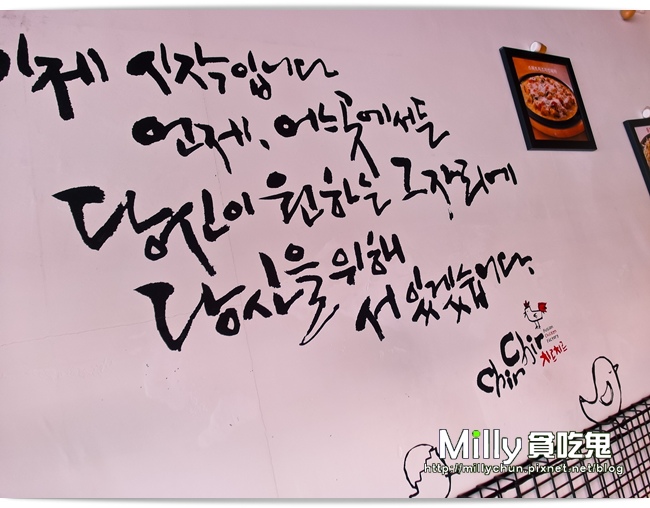 이제 시작입니다
언제, 어느곳에서든
당신이 원하는 그자리에
당신을 위해
서 있겠습니다.
Chir Chir
Fusion
Chicken
Factory
치르치르
Milly 貪吃鬼
http://millychun.pixnet.net/blog